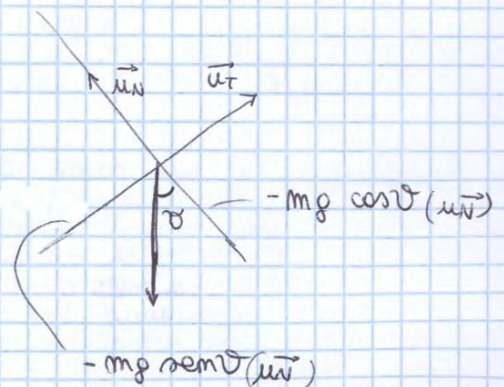 u⃗N
u⃗T
-mg cosϑ (u⃗N)
ϑ
-mg senϑ (u⃗N)